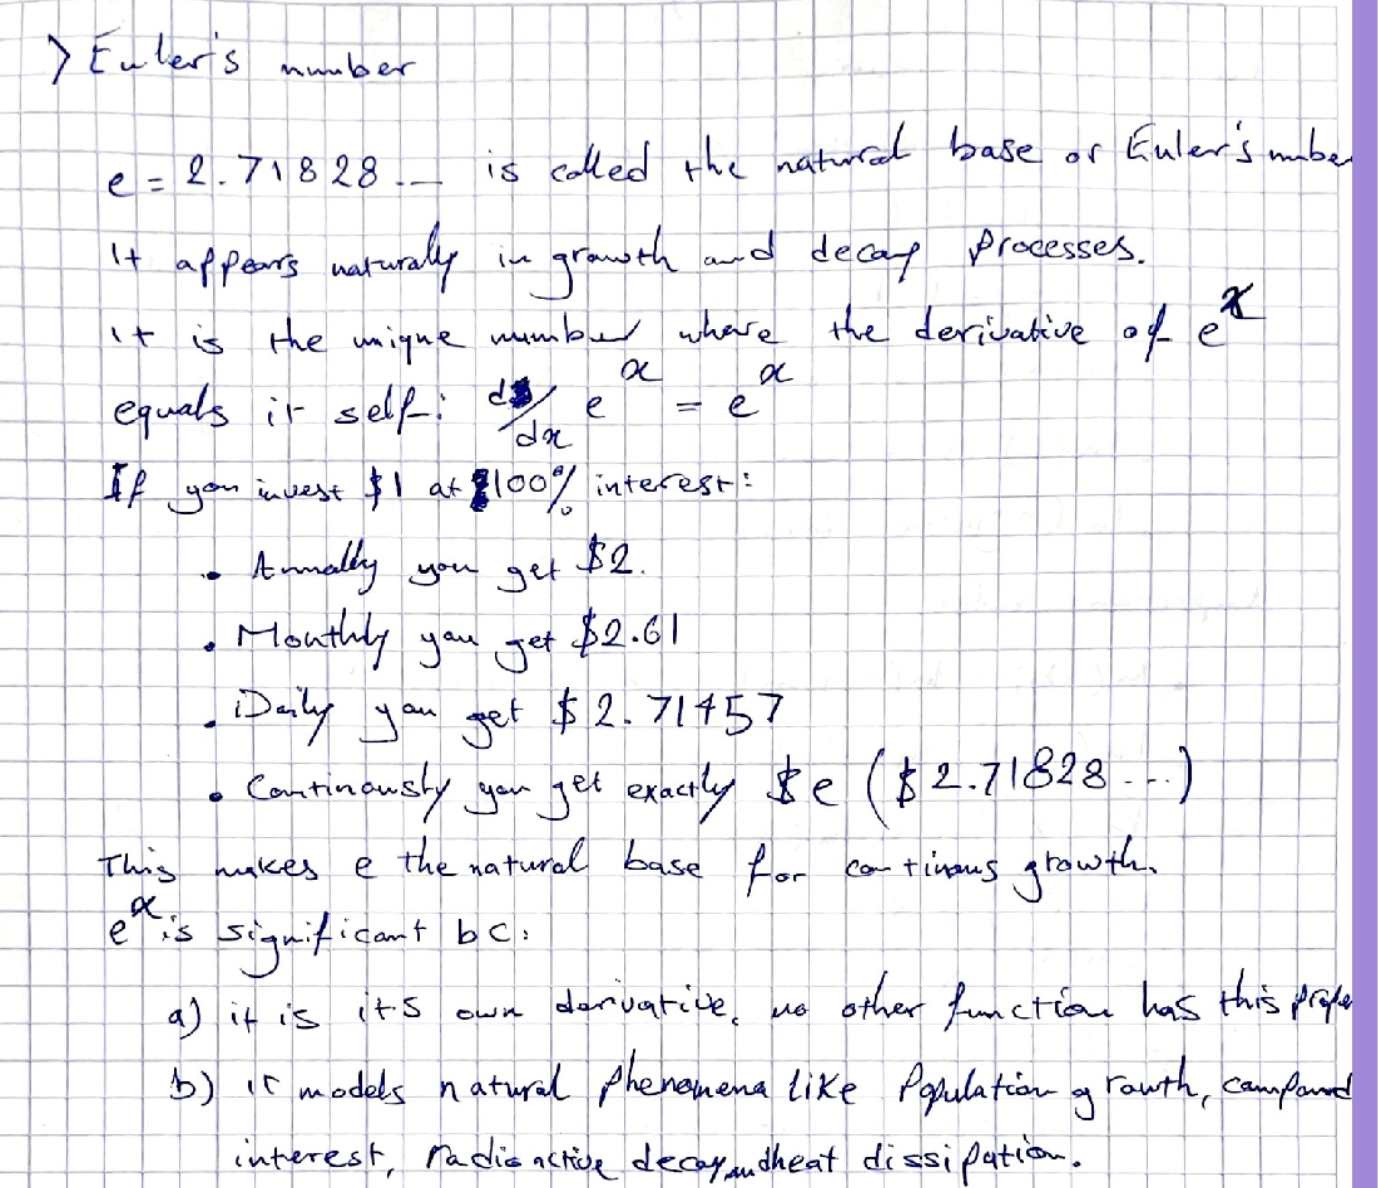 > Euler's number
e = 2.71828... is called the natural base or Euler's number
It appears naturaly in growth and decay processes.
it is the unique number where the derivative of e^x
equals it self: d/dx e^x = e^x
If you invest $1 at 100% interest:
• Annally you get $2.
• Monthly you get $2.61
• Daily you get $2.71457
• Continously you get exactly $e ($2.71828...)
This makes e the natural base for continous growth.
e^x is significant bc:
a) it is it's own derivative, no other function has this
b) it models natural phenomena like Population growth, compound
interest, radioactive decay and heat dissipation.